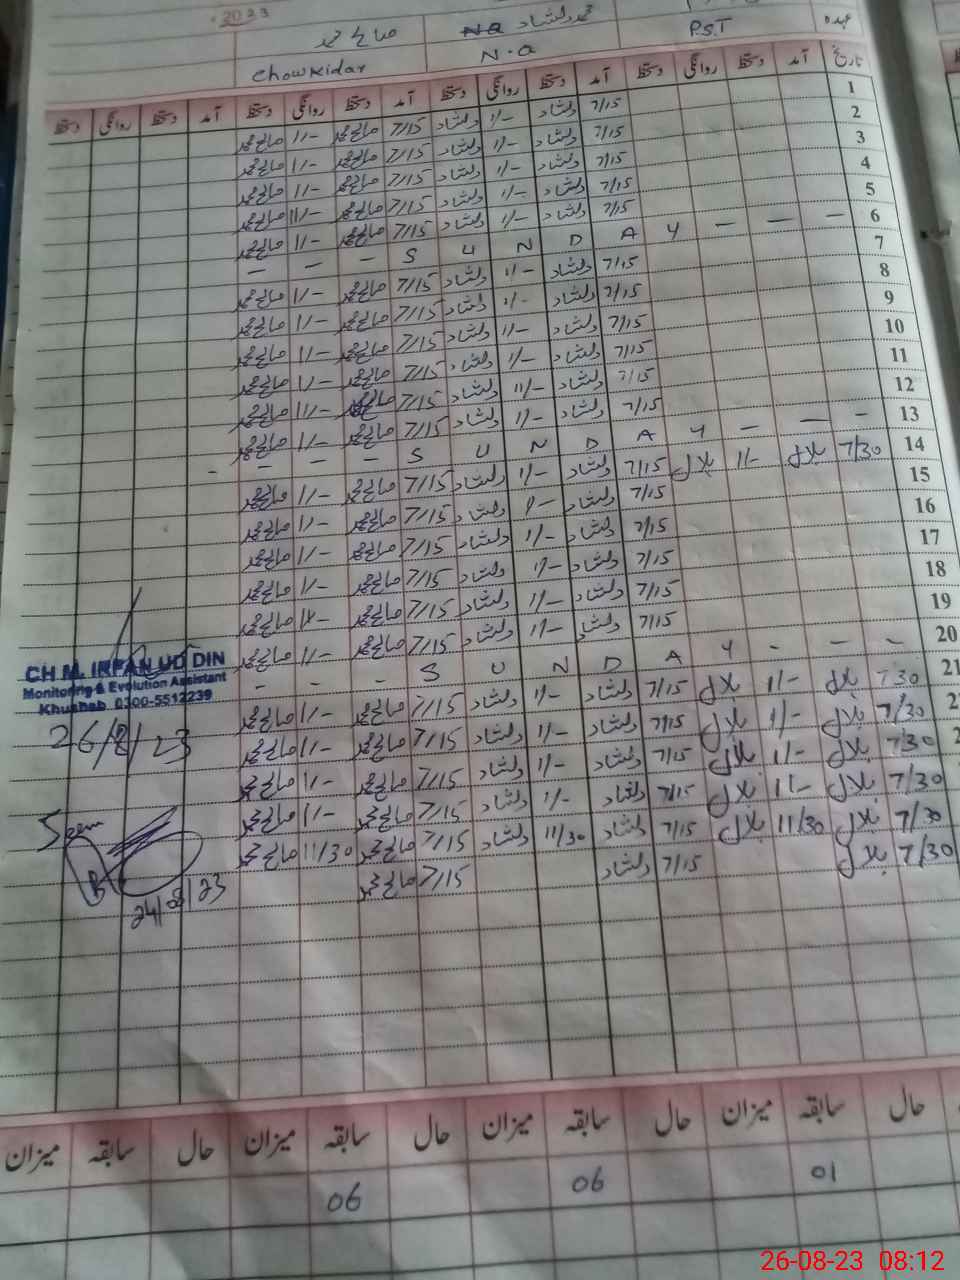 2023
عہدہ P.S.T محمد دلشاد N.Q صالح محمد
N.Q Chowkidar
تاریخ آمد دستخط روانگی دستخط آمد دستخط روانگی دستخط آمد دستخط روانگی دستخط آمد دستخط روانگی دستخط
1 7/15 دلشاد 1/- دلشاد 7/15 صالح محمد 1/- صالح محمد
2 7/15 دلشاد 1/- دلشاد 7/15 صالح محمد 1/- صالح محمد
3 7/15 دلشاد 1/- دلشاد 7/15 صالح محمد 1/- صالح محمد
4 7/15 دلشاد 1/- دلشاد 7/15 صالح محمد 11/- صالح محمد
5 7/15 دلشاد 1/- دلشاد 7/15 صالح محمد 1/- صالح محمد
6 — — — S U N D A Y — — —
7 7/15 دلشاد 1/- دلشاد 7/15 صالح محمد 1/- صالح محمد
8 7/15 دلشاد 1/- دلشاد 7/15 صالح محمد 1/- صالح محمد
9 7/15 دلشاد 1/- دلشاد 7/15 صالح محمد 1/- صالح محمد
10 7/15 دلشاد 1/- دلشاد 7/15 صالح محمد 1/- صالح محمد
11 7/15 دلشاد 11/- دلشاد 7/15 صالح محمد 11/- صالح محمد
12 7/15 دلشاد 1/- دلشاد 7/15 صالح محمد 1/- صالح محمد
13 — — — S U N D A Y — — —
14 7/30 بلال 1/- بلال 7/15 دلشاد 1/- دلشاد 7/15 صالح محمد 1/- صالح محمد
15 7/15 دلشاد 1/- دلشاد 7/15 صالح محمد 1/- صالح محمد
16 7/15 دلشاد 1/- دلشاد 7/15 صالح محمد 1/- صالح محمد
17 7/15 دلشاد 1/- دلشاد 7/15 صالح محمد 1/- صالح محمد
18 7/15 دلشاد 1/- دلشاد 7/15 صالح محمد صالح محمد
19 7/15 دلشاد 1/- دلشاد 7/15 صالح محمد 1/- صالح محمد
20 - - - S U N D A Y - - -
21 7 30 بلال 1/- بلال 7/15 دلشاد 1/- دلشاد 7/15 صالح محمد 1/- صالح محمد
7/30 بلال 1/- بلال 7/15 دلشاد 1/- دلشاد 7/15 صالح محمد 1/- صالح محمد
7/30 بلال 1/- بلال 7/15 دلشاد 1/- دلشاد 7/15 صالح محمد 1/- صالح محمد
7/30 بلال 1/- بلال 7/15 دلشاد 1/- دلشاد 7/15 صالح محمد 1/- صالح محمد
7/30 بلال 11/30 بلال 7/15 دلشاد 11/30 دلشاد 7/15 صالح محمد 11/30 صالح محمد
7/30 بلال 7/15 دلشاد 7/15 صالح محمد
CH M. IRFAN UD DIN
Monitoring & Evolution Assistant
Khushab 0300-5512239
26/8/23
24/08/23
حال سابقہ میزان حال سابقہ میزان حال سابقہ میزان حال سابقہ میزان
01 06 06
26-08-23 08:12